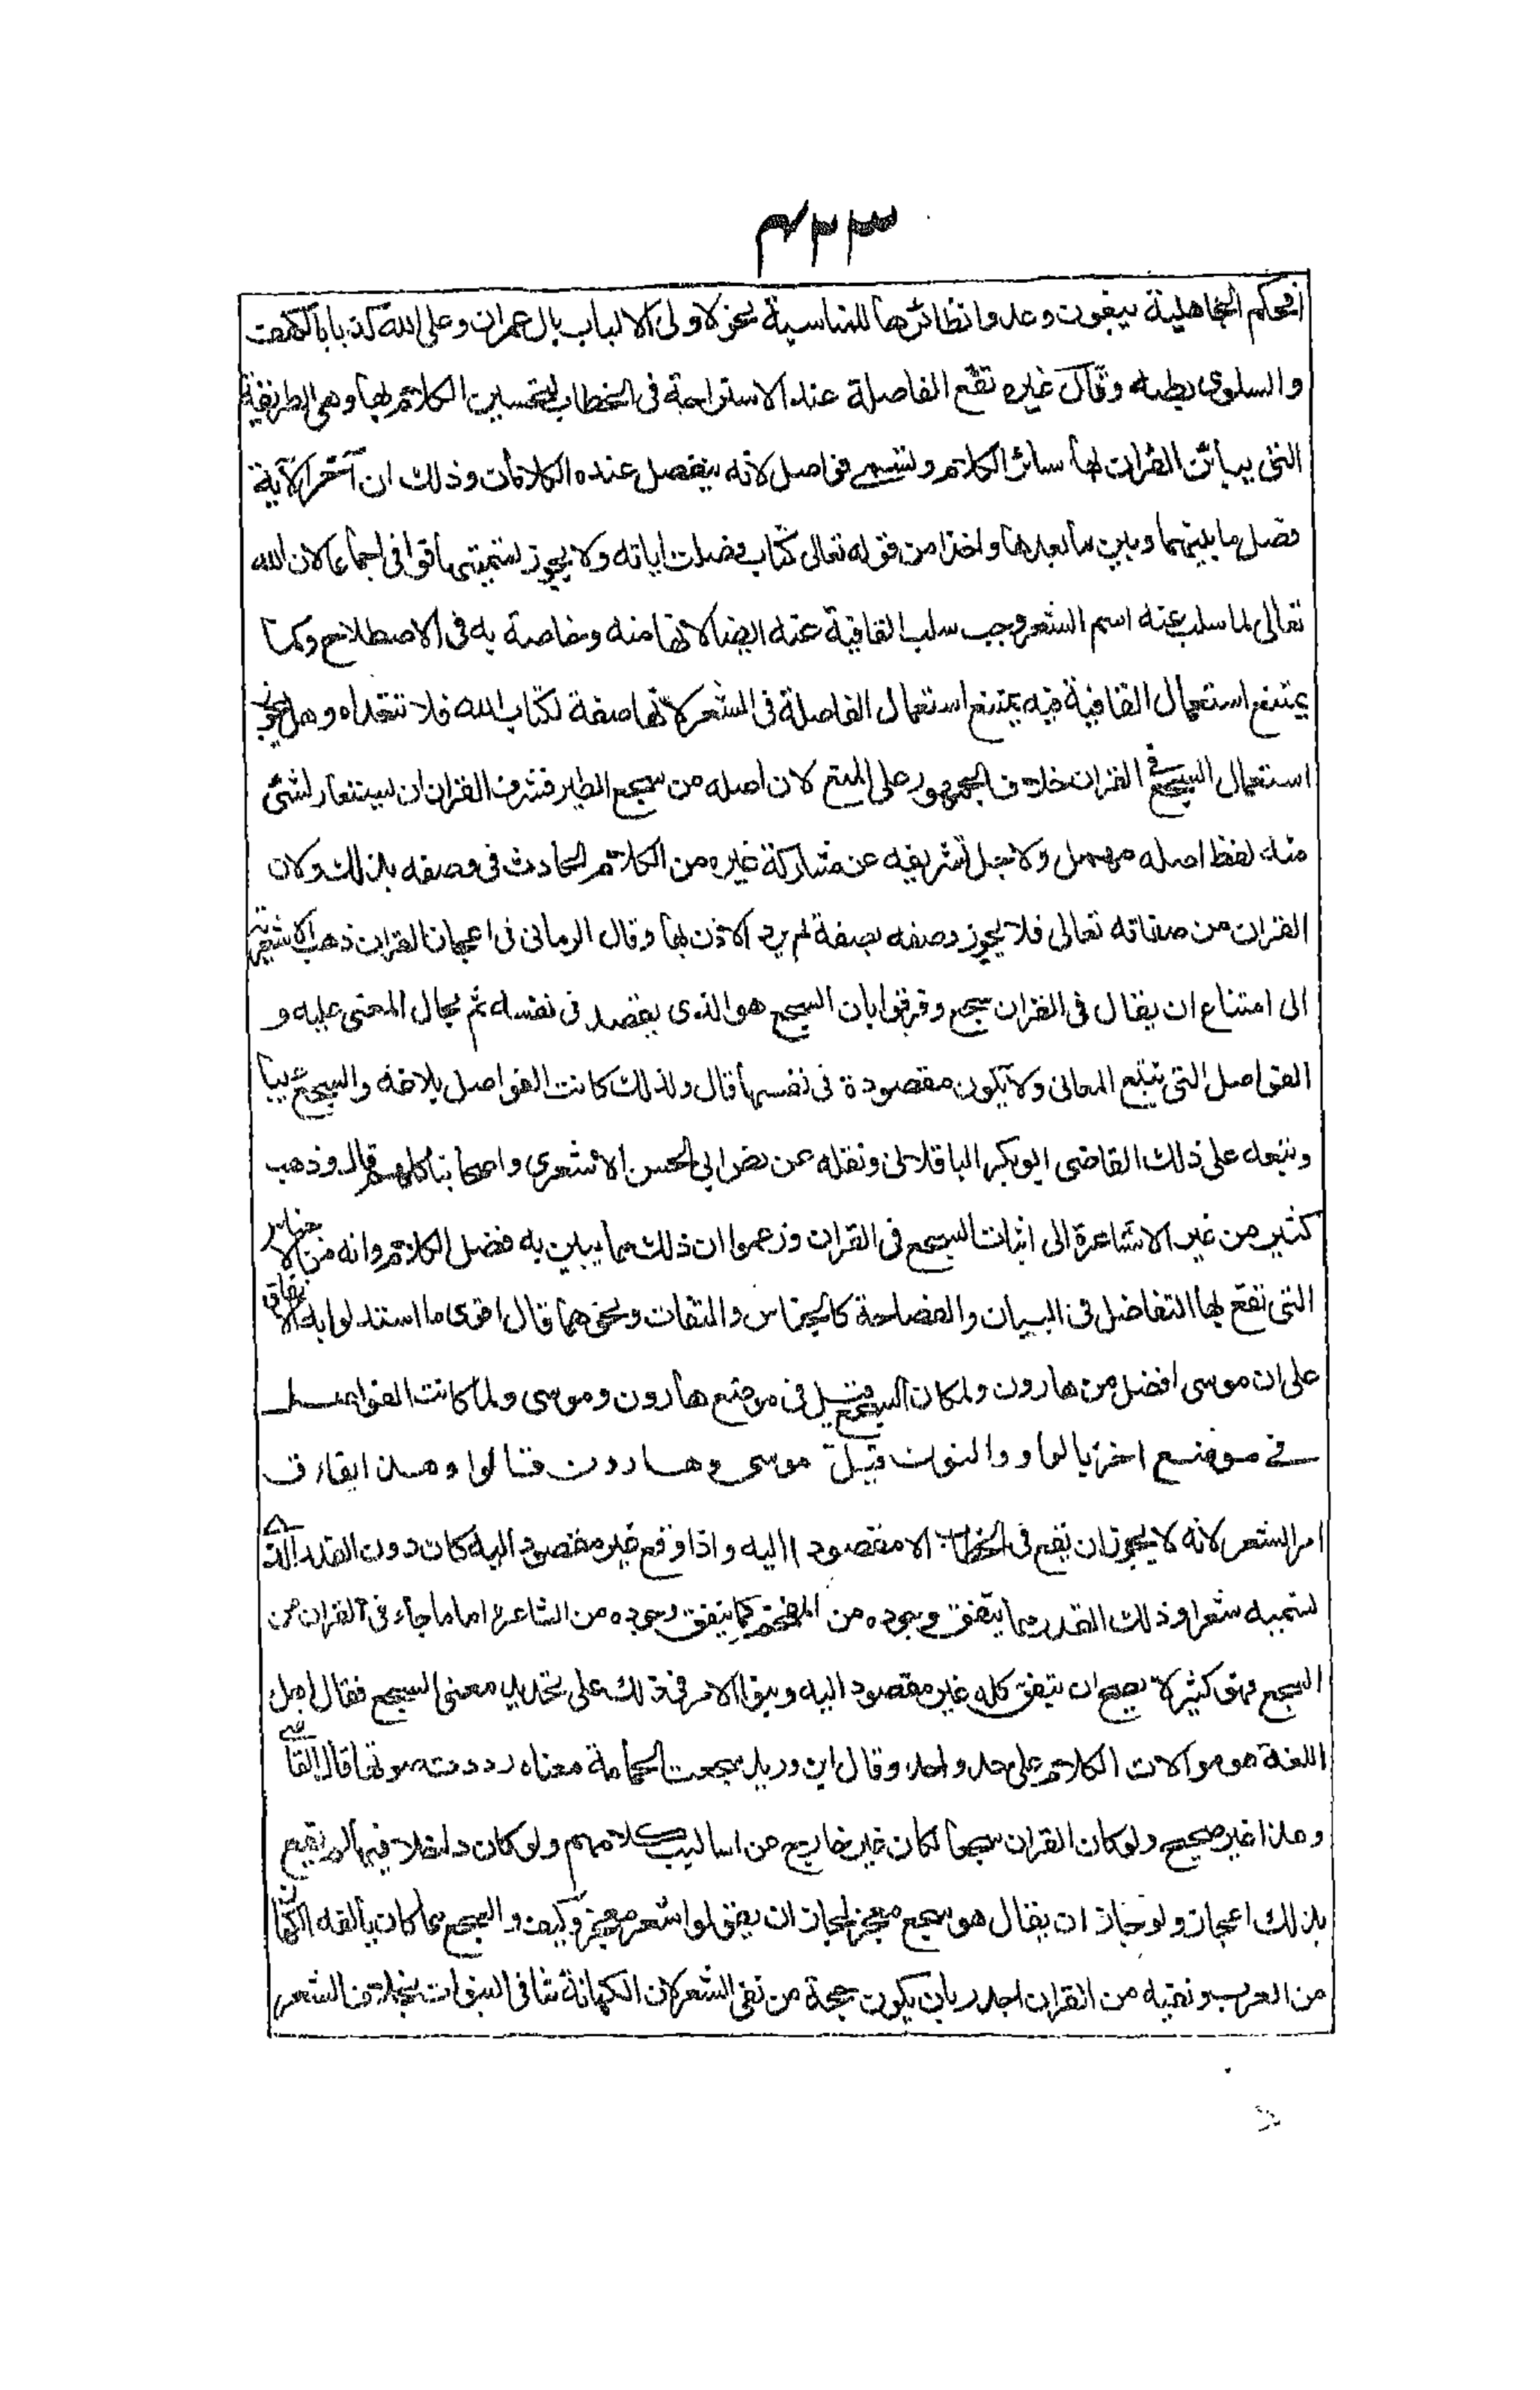 ۴۳۳
افحكم الجاهلية يبغون وعدوا نظائرها للمناسبة نحو لاولى الالباب بال عمران وعلى الله كذبا بالكهف
والسلوى بطه وقال غيره تقع الفاصلة عند الاستراحة فى الخطاب لتحسين الكلام بها وهى الطريقة
التى يبائن القران بها سائر الكلام وتسمى فواصل لانه ينفصل عنده الكلامان وذلك ان آخر الآية
فصل ما بينهما وبين ما بعدها واخذا من قوله تعالى كتاب فصلت اياته ولا يجوز تسميتها قوافى اجماعا لان الله
تعالى لما سلب عنه اسم الشعر وجب سلب القافية عنه ايضا لانها منه وخاصة به فى الاصطلاح وكما
يمتنع استعمال القافية فيه يمتنع استعمال الفاصلة فى الشعر لانها صفة لكتاب الله فلا تتعداه وهل يجوز
استعمال السجع فى القران خلاف الجمهور على المنع لان اصله من سجع الطير فشرف القران ان يستعار لشئ
منه لفظ اصله مهمل ولاجل تشريفه عن مشاركة غيره من الكلام الحادث فى وصفه بذلك ولان
القران من صفاته تعالى فلا يجوز وصفه بصفة لم يرد الاذن بها وقال الرمانى فى اعجاز القران ذهب الاشعرية
الى امتناع ان يقال فى القران سجع وفرقوا بان السجع هو الذى يقصد فى نفسه ثم يحال المعنى عليه و
الفواصل التى تتبع المعانى ولا يكون مقصودة فى نفسها قال ولذلك كانت الفواصل بلاغة والسجع عيبا
وتبعه على ذلك القاضى ابوبكر الباقلانى ونقله عن نص ابى الحسن الاشعرى واصحابنا كلهم قال وذهب
كثير من غير الاشاعرة الى اثبات السجع فى القران وزعموا ان ذلك مما يبين به فضل الكلام وانه من الاجناس
التى تقع بها التفاضل فى البيان والفصاحة كالجناس والتفات ونحوهما قال اقوى ما استدلوا به الاتفاق
على ان موسى افضل من هارون ولمكان السجع قيل فى موضع هارون وموسى ولما كانت الفواصل
فى موضع اخر بالواو والنون قيل موسى وهارون قالوا وهذا يفارق
امر الشعر لانه لا يجوز ان يقع فى الخطاب الا مقصودا اليه واذا وقع غير مقصود اليه كان دون القدر الذى
نسميه شعرا وذلك القدر مما يتفق وجوده من المفحم كما يتفق وجوده من الشاعر اما ما جاء فى القران من
السجع فهو كثير لا يصح ان يتفق كله غير مقصود اليه وبنوا الامر فى ذلك على تحديد معنى السجع فقال اهل
اللغة هو موالات الكلام على حد واحد وقال ابن دريد سجعت الحمامة معناه رددت صوتها قال القاضى
وهذا غير صحيح ولو كان القران سجعا لكان غير خارج عن اساليب كلامهم ولو كان داخلا فيها لم يقع
بذلك اعجاز ولو جاز ان يقال هو سجع معجز لجاز ان يقولوا شعر معجز وكيف والسجع مما كان يألفه الكهان
من العرب ونفيه من القران اجدر بان يكون حجة من نفى الشعر لان الكهانة تنافى النبوات بخلاف الشعر